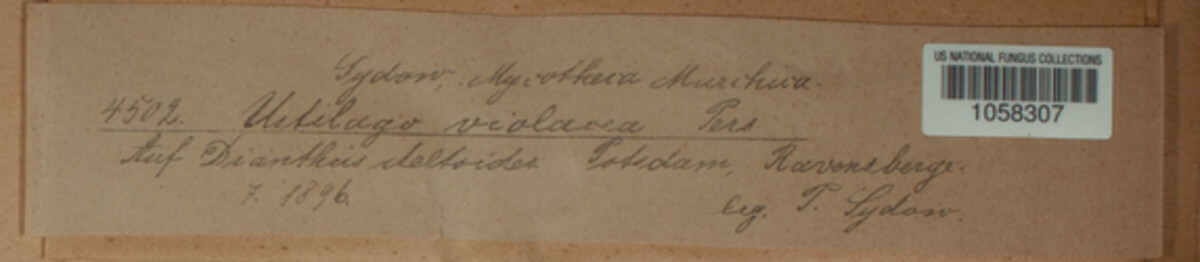 Sydow, Mycotheca Marchica.
4502. Ustilago violacea Pers
Auf Dianthus deltoides Potsdam, Ravensberge.
7. 1896.
leg. P. Sydow.
US NATIONAL FUNGUS COLLECTIONS
1058307